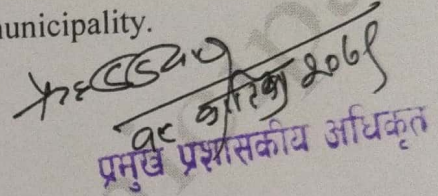 unicipality.
१८ कार्तिक २०७९
प्रमुख प्रशासकीय अधिकृत